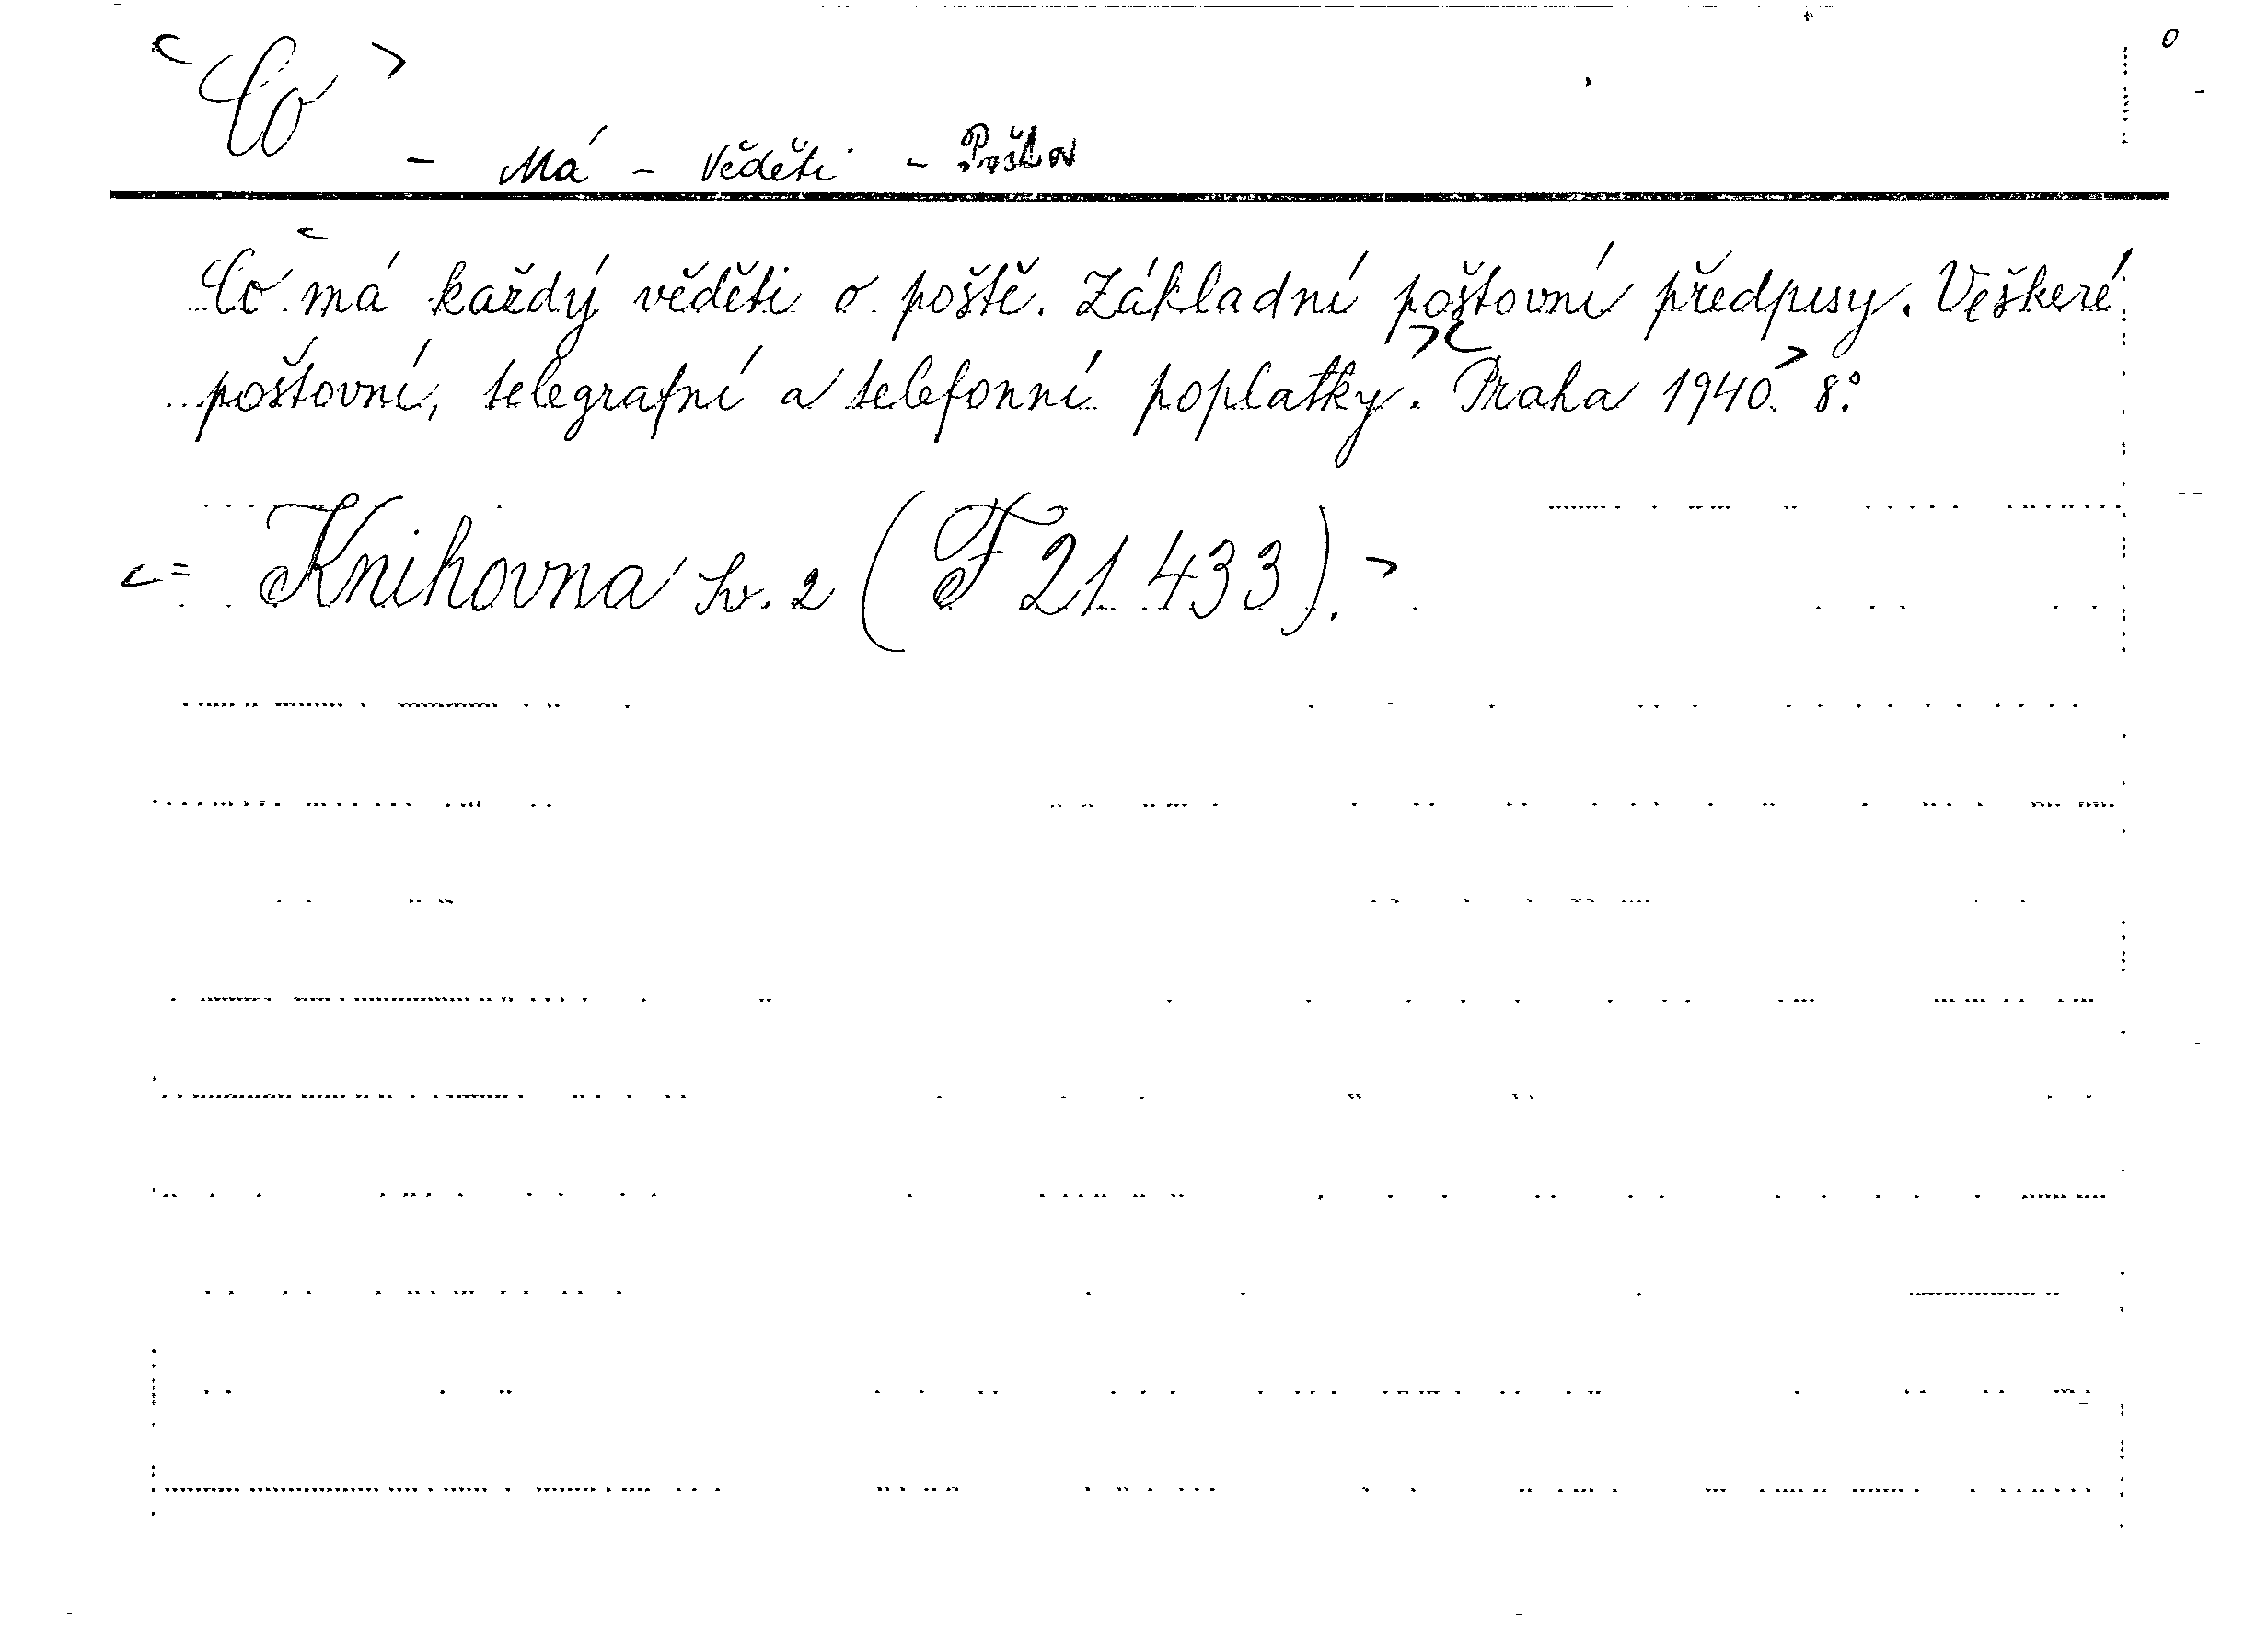 < Co >
- Má - Věděti - Pošta
Co má každý věděti o poště. Základní poštovní předpisy. Veškeré
poštovní, telegrafní a telefonní poplatky. Praha 1940. 8°.
= Knihovna sv. 2 (F 21.433).